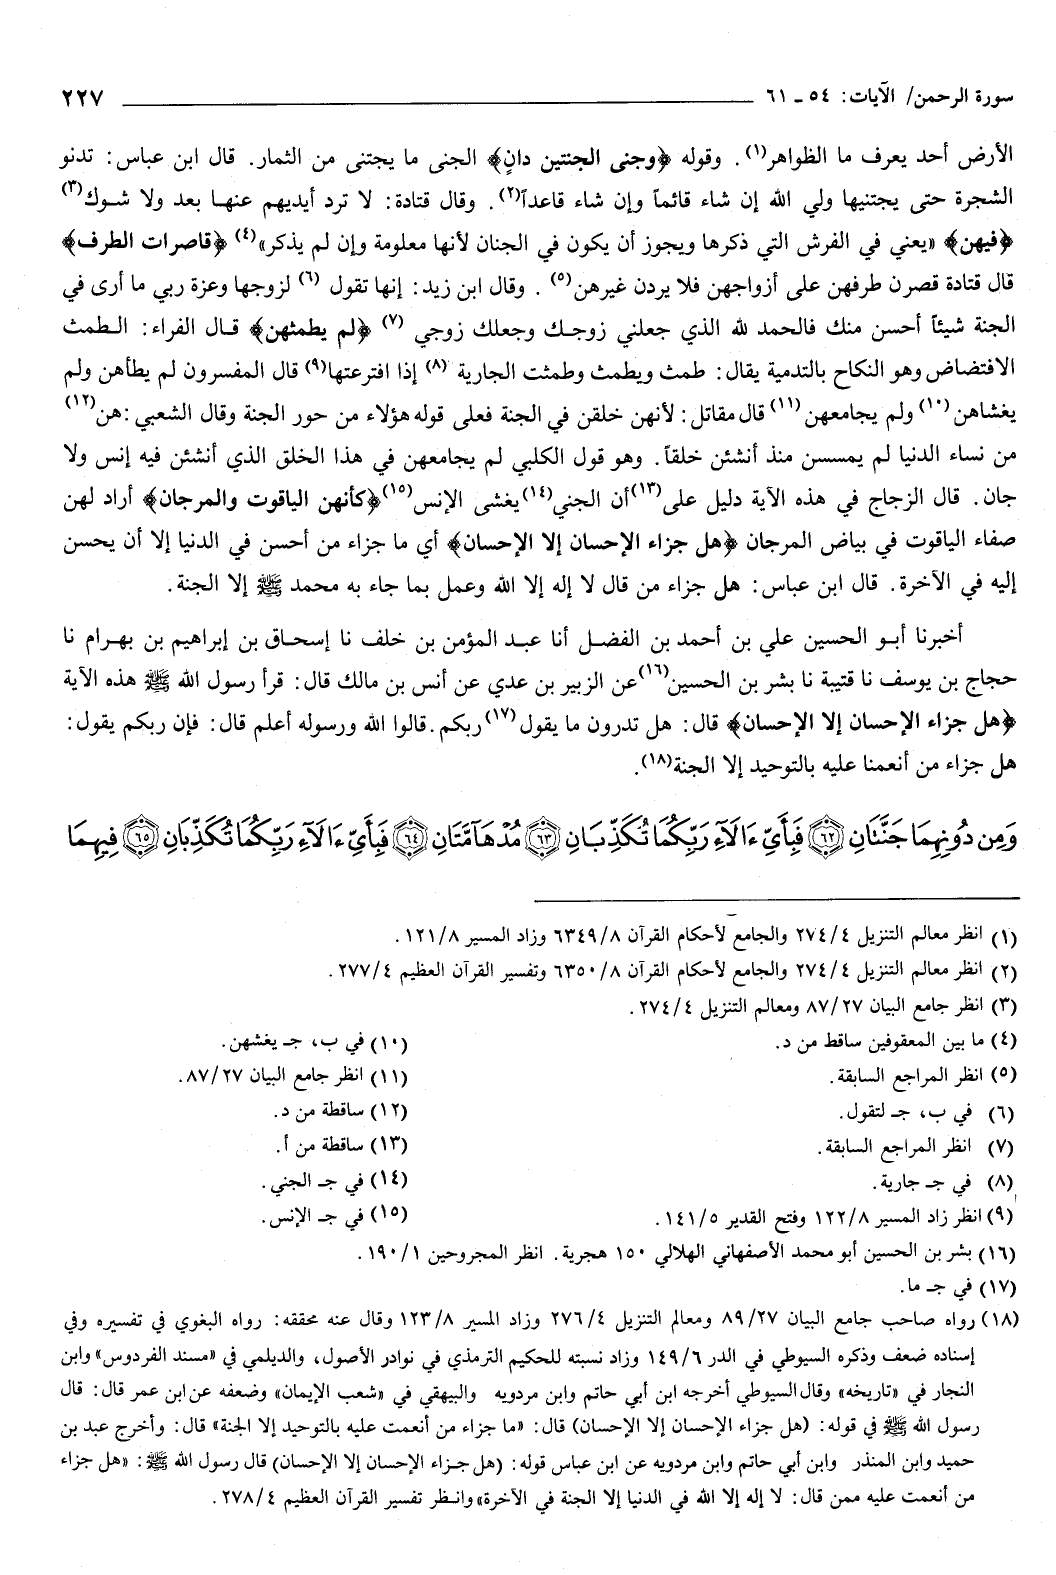 سورة الرحمن/ الآيات: ٥٤ ـ ٦١ ٢٢٧
الأرض أحد يعرف ما الظواهر(١). وقوله ﴿وجنى الجنتين دانٍ﴾ الجنى ما يجتنى من الثمار. قال ابن عباس: تدنو
الشجرة حتى يجتنيها ولي الله إن شاء قائماً وإن شاء قاعداً(٢). وقال قتادة: لا ترد أيديهم عنها بعد ولا شوك(٣)
﴿فيهن﴾ «يعني في الفرش التي ذكرها ويجوز أن يكون في الجنان لأنها معلومة وإن لم يذكر»(٤) ﴿قاصرات الطرف﴾
قال قتادة قصرن طرفهن على أزواجهن فلا يردن غيرهن(٥) . وقال ابن زيد: إنها تقول (٦) لزوجها وعزة ربي ما أرى في
الجنة شيئاً أحسن منك فالحمد لله الذي جعلني زوجك وجعلك زوجي (٧) ﴿لم يطمثهن﴾ قال الفراء: الطمث
الافتضاض وهو النكاح بالتدمية يقال: طمث ويطمث وطمثت الجارية (٨) إذا افترعتها(٩) قال المفسرون لم يطأهن ولم
يغشاهن(١٠) ولم يجامعهن(١١) قال مقاتل: لأنهن خلقن في الجنة فعلى قوله هؤلاء من حور الجنة وقال الشعبي :هن(١٢)
من نساء الدنيا لم يمسسن منذ أنشئن خلقاً. وهو قول الكلبي لم يجامعهن في هذا الخلق الذي أنشئن فيه إنس ولا
جان. قال الزجاج في هذه الآية دليل على(١٣)أن الجني(١٤)يغشى الإنس(١٥)﴿كأنهن الياقوت والمرجان﴾ أراد لهن
صفاء الياقوت في بياض المرجان ﴿هل جزاء الإحسان إلا الإحسان﴾ أي ما جزاء من أحسن في الدنيا إلا أن يحسن
إليه في الآخرة. قال ابن عباس: هل جزاء من قال لا إله إلا الله وعمل بما جاء به محمد ﷺ إلا الجنة.
أخبرنا أبو الحسين علي بن أحمد بن الفضل أنا عبد المؤمن بن خلف نا إسحاق بن إبراهيم بن بهرام نا
حجاج بن يوسف نا قتيبة نا بشر بن الحسين(١٦)عن الزبير بن عدي عن أنس بن مالك قال: قرأ رسول الله ﷺ هذه الآية
﴿هل جزاء الإحسان إلا الإحسان﴾ قال: هل تدرون ما يقول(١٧)ربكم. قالوا الله ورسوله أعلم قال: فإن ربكم يقول:
هل جزاء من أنعمنا عليه بالتوحيد إلا الجنة(١٨).
وَمِن دُونِهِمَا جَنَّتَانِ ٦٢ فَبِأَيِّ ءَالَآءِ رَبِّكُمَا تُكَذِّبَانِ ٦٣ مُدْهَآمَّتَانِ ٦٤ فَبِأَيِّ ءَالَآءِ رَبِّكُمَا تُكَذِّبَانِ ٦٥ فِيهِمَا
(١) انظر معالم التنزيل ٢٧٤/٤ والجامع لأحكام القرآن ٦٣٤٩/٨ وزاد المسير ١٢١/٨.
(٢) انظر معالم التنزيل ٢٧٤/٤ والجامع لأحكام القرآن ٦٣٥٠/٨ وتفسير القرآن العظيم ٢٧٧/٤.
(٣) انظر جامع البيان ٨٧/٢٧ ومعالم التنزيل ٢٧٤/٤.
(٤) ما بين المعقوفين ساقط من د.
(٥) انظر المراجع السابقة.
(٦) في ب، جـ لتقول.
(٧) انظر المراجع السابقة.
(٨) في جـ جارية.
(٩) انظر زاد المسير ١٢٢/٨ وفتح القدير ١٤١/٥.
(١٠) في ب، جـ يغشهن.
(١١) انظر جامع البيان ٨٧/٢٧.
(١٢) ساقطة من د.
(١٣) ساقطة من أ.
(١٤) في جـ الجني.
(١٥) في جـ الإنس.
(١٦) بشر بن الحسين أبو محمد الأصفهاني الهلالي ١٥٠ هجرية. انظر المجروحين ١٩٠/١.
(١٧) في جـ ما.
(١٨) رواه صاحب جامع البيان ٨٩/٢٧ ومعالم التنزيل ٢٧٦/٤ وزاد المسير ١٢٣/٨ وقال عنه محققه: رواه البغوي في تفسيره وفي
إسناده ضعف وذكره السيوطي في الدر ١٤٩/٦ وزاد نسبته للحكيم الترمذي في نوادر الأصول، والديلمي في «مسند الفردوس» وابن
النجار في «تاريخه» وقال السيوطي أخرجه ابن أبي حاتم وابن مردويه والبيهقي في «شعب الإيمان» وضعفه عن ابن عمر قال: قال
رسول الله ﷺ في قوله: (هل جزاء الإحسان إلا الإحسان) قال: «ما جزاء من أنعمت عليه بالتوحيد إلا الجنة» قال: وأخرج عبد بن
حميد وابن المنذر وابن أبي حاتم وابن مردويه عن ابن عباس قوله: (هل جزاء الإحسان إلا الإحسان) قال رسول الله ﷺ: «هل جزاء
من أنعمت عليه ممن قال: لا إله إلا الله في الدنيا إلا الجنة في الآخرة» وانظر تفسير القرآن العظيم ٢٧٨/٤.